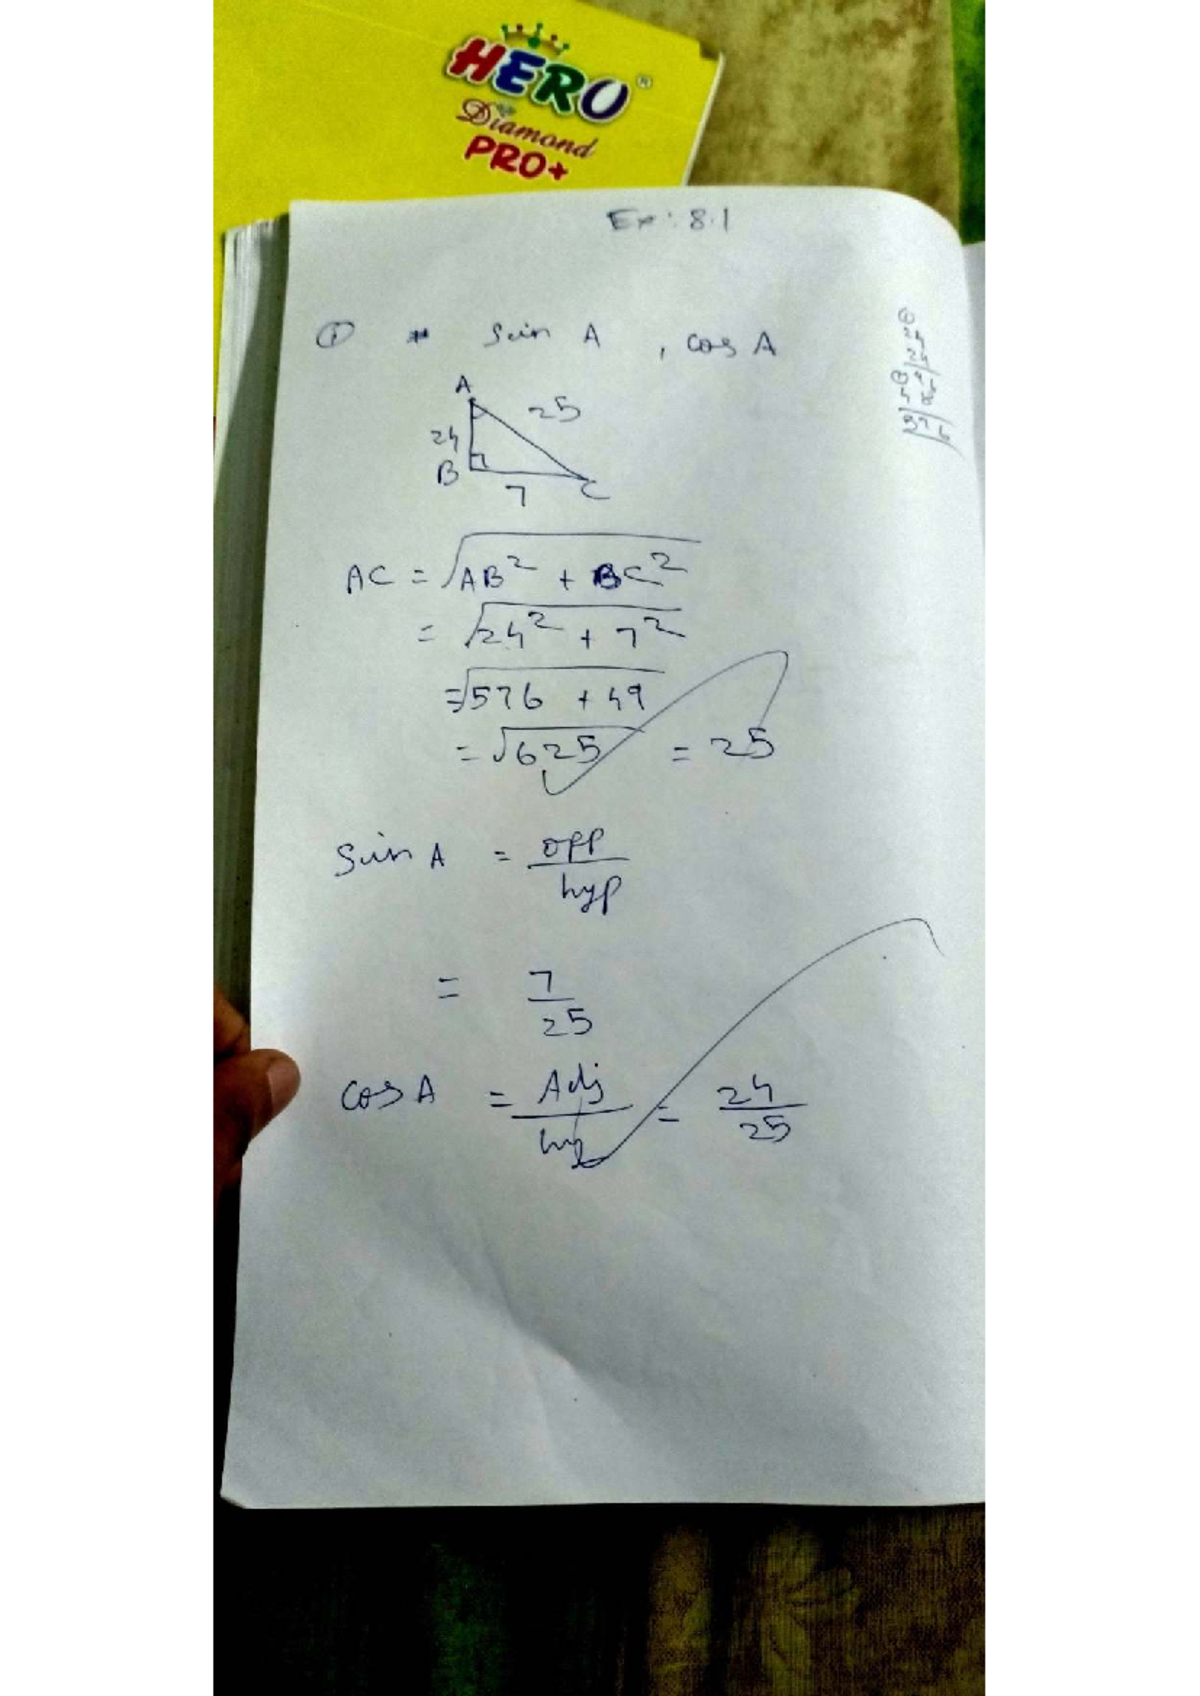 HERO®
Diamond
PRO+
Ex: 8.1
① * Sin A , cos A
A
25
24
B
7
C
AC = √AB² + BC²
= √24² + 7²
= √576 + 49
= √625 = 25
Sin A = opp/hyp
= 7/25
cos A = Adj/hyp = 24/25